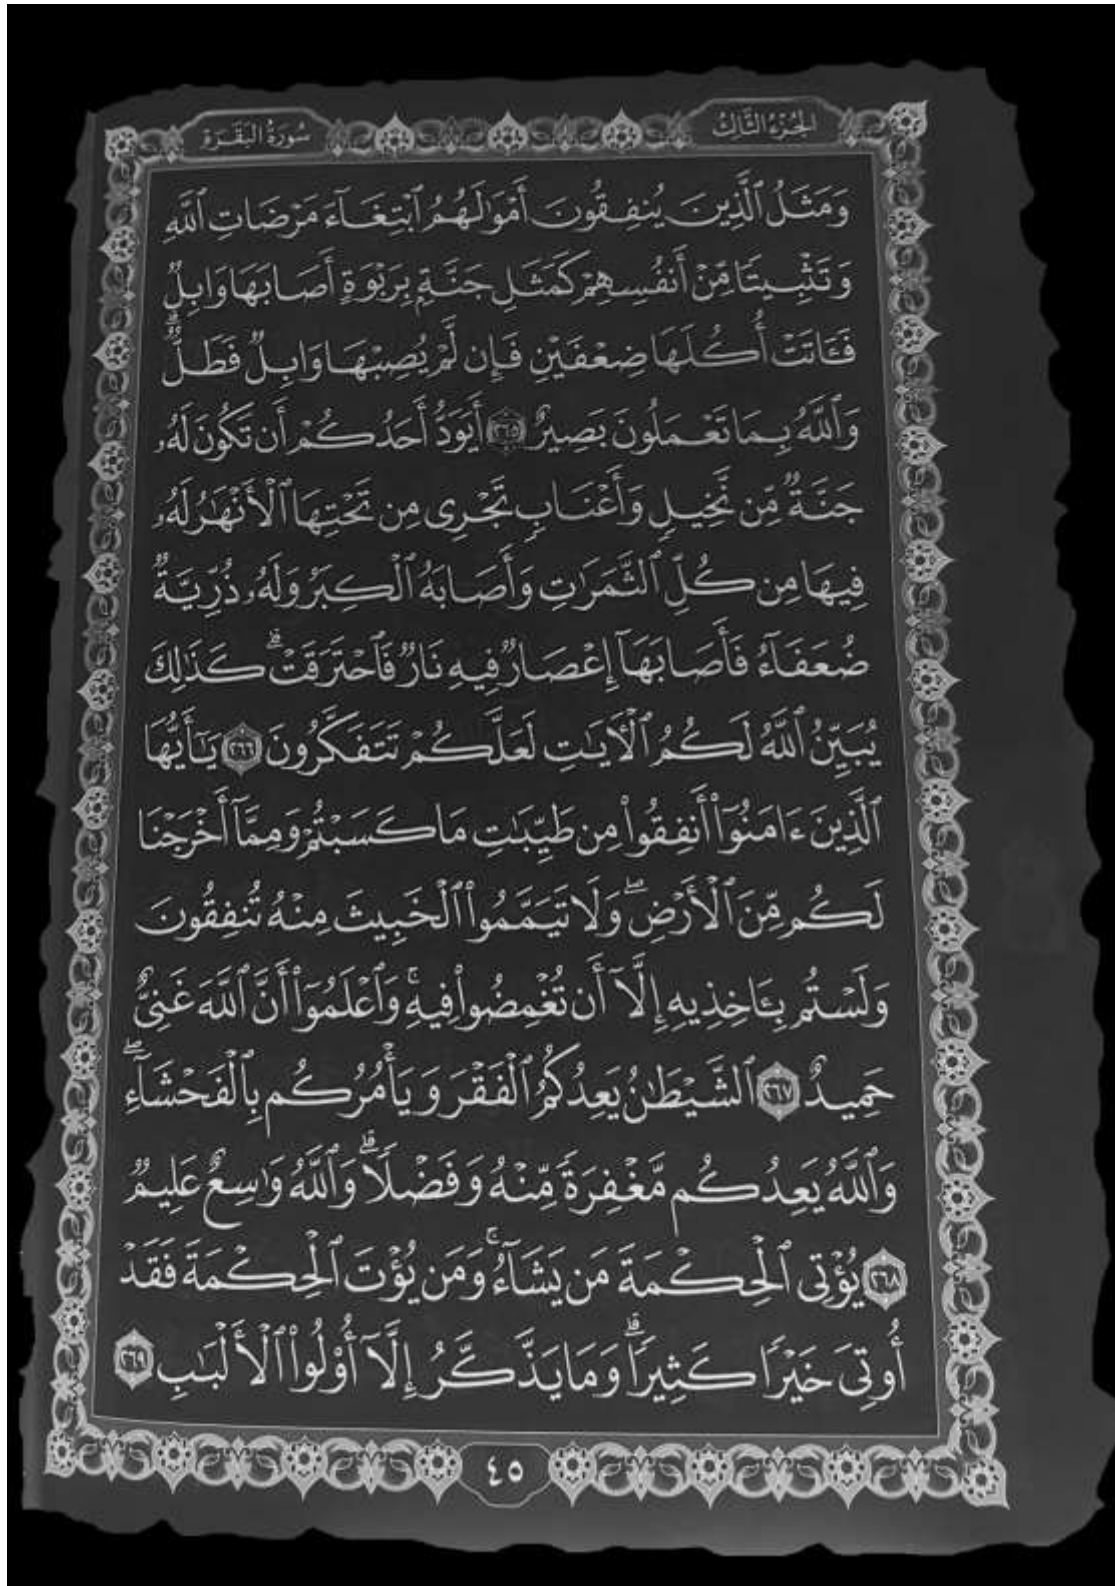 الجُزْءُ الثَّالِثُ سُورَةُ البَقَرَةِ
وَمَثَلُ ٱلَّذِينَ يُنفِقُونَ أَمْوَٰلَهُمُ ٱبْتِغَآءَ مَرْضَاتِ ٱللَّهِ
وَتَثْبِيتًا مِّنْ أَنفُسِهِمْ كَمَثَلِ جَنَّةٍۭ بِرَبْوَةٍ أَصَابَهَا وَابِلٌ
فَـَٔاتَتْ أُكُلَهَا ضِعْفَيْنِ فَإِن لَّمْ يُصِبْهَا وَابِلٌ فَطَلٌّۗ
وَٱللَّهُ بِمَا تَعْمَلُونَ بَصِيرٌ ٢٦٥ أَيَوَدُّ أَحَدُكُمْ أَن تَكُونَ لَهُۥ
جَنَّةٌ مِّن نَّخِيلٍ وَأَعْنَابٍ تَجْرِى مِن تَحْتِهَا ٱلْأَنْهَٰرُ لَهُۥ
فِيهَا مِن كُلِّ ٱلثَّمَرَٰتِ وَأَصَابَهُ ٱلْكِبَرُ وَلَهُۥ ذُرِّيَّةٌ
ضُعَفَآءُ فَأَصَابَهَآ إِعْصَارٌ فِيهِ نَارٌ فَٱحْتَرَقَتْۗ كَذَٰلِكَ
يُبَيِّنُ ٱللَّهُ لَكُمُ ٱلْـَٔايَٰتِ لَعَلَّكُمْ تَتَفَكَّرُونَ ٢٦٦ يَٰٓأَيُّهَا
ٱلَّذِينَ ءَامَنُوٓا۟ أَنفِقُوا۟ مِن طَيِّبَٰتِ مَا كَسَبْتُمْ وَمِمَّآ أَخْرَجْنَا
لَكُم مِّنَ ٱلْأَرْضِۖ وَلَا تَيَمَّمُوا۟ ٱلْخَبِيثَ مِنْهُ تُنفِقُونَ
وَلَسْتُم بِـَٔاخِذِيهِ إِلَّآ أَن تُغْمِضُوا۟ فِيهِۚ وَٱعْلَمُوٓا۟ أَنَّ ٱللَّهَ غَنِىٌّ
حَمِيدٌ ٢٦٧ ٱلشَّيْطَٰنُ يَعِدُكُمُ ٱلْفَقْرَ وَيَأْمُرُكُم بِٱلْفَحْشَآءِۖ
وَٱللَّهُ يَعِدُكُم مَّغْفِرَةً مِّنْهُ وَفَضْلًاۗ وَٱللَّهُ وَٰسِعٌ عَلِيمٌ
٢٦٨ يُؤْتِى ٱلْحِكْمَةَ مَن يَشَآءُۚ وَمَن يُؤْتَ ٱلْحِكْمَةَ فَقَدْ
أُوتِىَ خَيْرًا كَثِيرًاۗ وَمَا يَذَّكَّرُ إِلَّآ أُو۟لُوا۟ ٱلْأَلْبَٰبِ ٢٦٩
٤٥